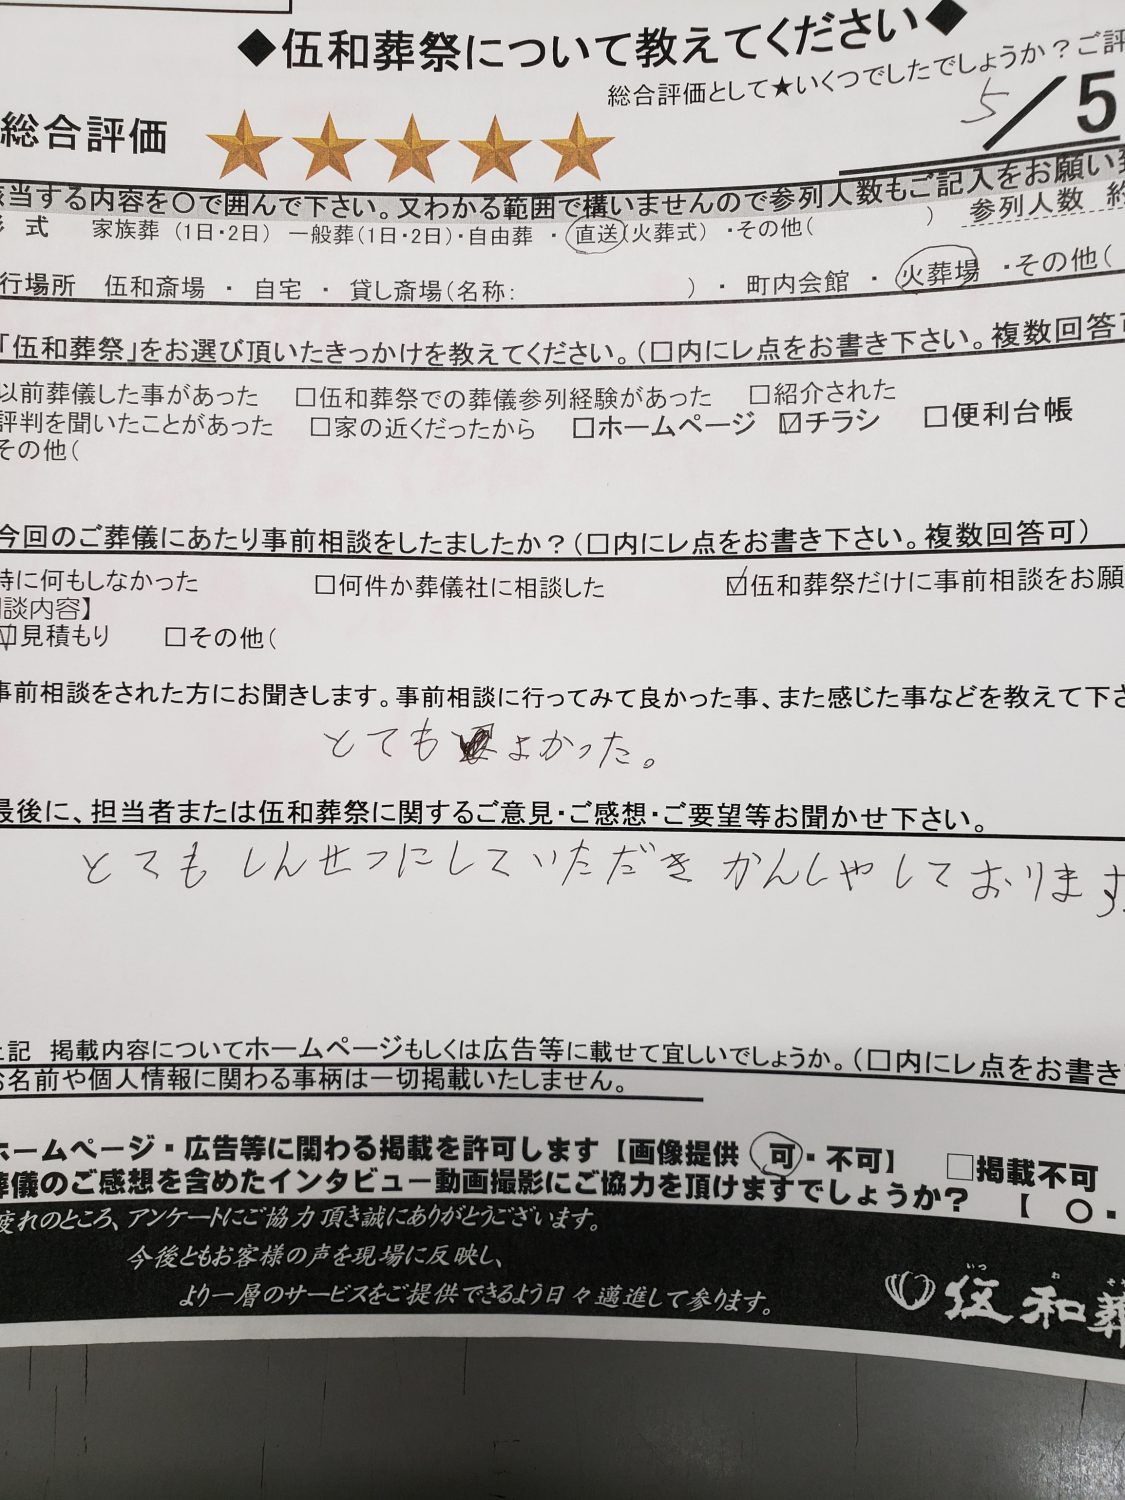 ◆伍和葬祭について教えてください◆
総合評価として★いくつでしたでしょうか？ご評
総合評価 5/5
当する内容を〇で囲んで下さい。又わかる範囲で構いませんので参列人数もご記入をお願い
式 家族葬（1日・2日） 一般葬(1日・2日)・自由葬 ・ 直送(火葬式) ・その他( ) 参列人数 約
行場所 伍和斎場 ・ 自宅 ・ 貸し斎場(名称: ) ・ 町内会館 ・ 火葬場 ・その他(
「伍和葬祭」をお選び頂いたきっかけを教えてください。(□内にレ点をお書き下さい。複数回答可
以前葬儀した事があった □伍和葬祭での葬儀参列経験があった □紹介された
評判を聞いたことがあった □家の近くだったから □ホームページ ☑チラシ □便利台帳
その他(
今回のご葬儀にあたり事前相談をしたましたか？(□内にレ点をお書き下さい。複数回答可)
特に何もしなかった □何件か葬儀社に相談した ☑伍和葬祭だけに事前相談をお願
談内容】
☑見積もり □その他(
事前相談をされた方にお聞きします。事前相談に行ってみて良かった事、また感じた事などを教えて下さ
とても よかった。
最後に、担当者または伍和葬祭に関するご意見・ご感想・ご要望等お聞かせ下さい。
とても しんせつにしていただき かんしゃしております。
上記 掲載内容についてホームページもしくは広告等に載せて宜しいでしょうか。(□内にレ点をお書き
お名前や個人情報に関わる事柄は一切掲載いたしません。
ホームページ・広告等に関わる掲載を許可します【画像提供 可・不可】 □掲載不可
葬儀のご感想を含めたインタビュー動画撮影にご協力を頂けますでしょうか？ 【 〇・
疲れのところ、アンケートにご協力頂き誠にありがとうございます。
今後ともお客様の声を現場に反映し、
より一層のサービスをご提供できるよう日々邁進して参ります。
伍和葬